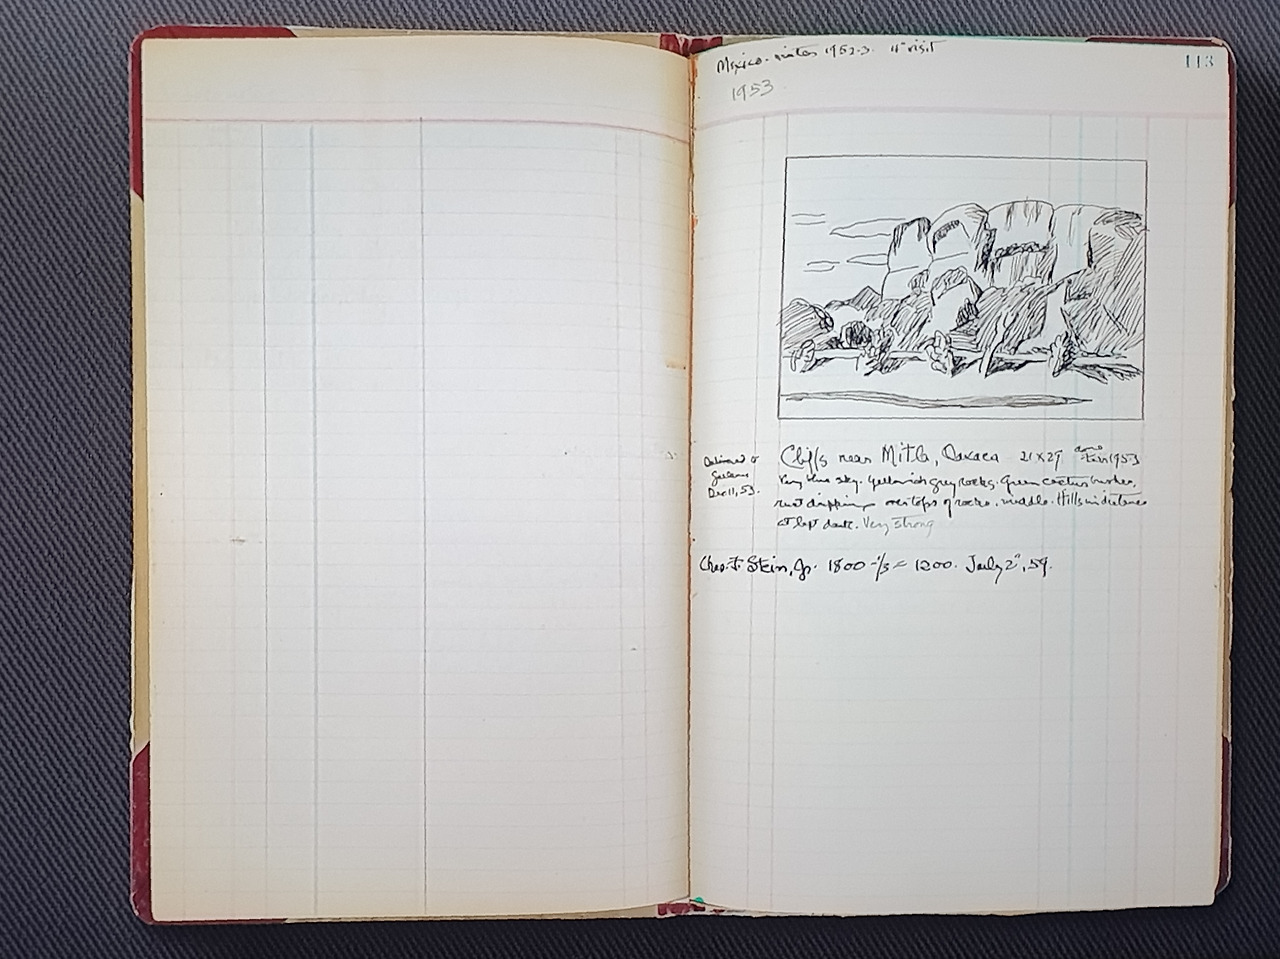 Mexico - winter 1952-3. 4th visit
113
1953
Cliffs near Mitla, Oaxaca 21 x 29
Delivered to
Dec 11, 53.
Very blue sky. Yellowish grey rocks. Green cactus bushes,
rust dripping over tops of rocks, middle. Hills in distance
at left dark. Very strong
Chas. F. Stein, Jr. 1800 -1/3 = 1200. July 2", 59.